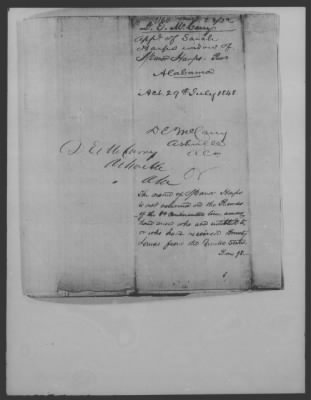 D. E. McCarry
appl of Sarah
Harps widow of
Manor Harps. Rev
Alabama
Act. 29th July 1848
D E McCarry
Ashville
Ala
D E McCarry
Ashville
Ala
The name of Manor Harps
is not returned on the Records
of the Continental line among
those men who are entitled to
or who have received Bounty
Lands from the United States.